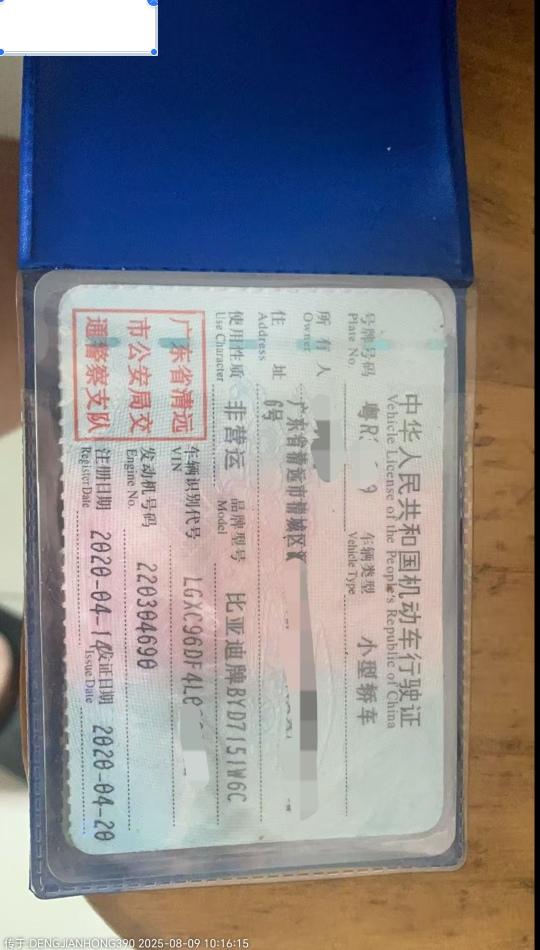 中华人民共和国机动车行驶证
Vehicle License of the People's Republic of China
号牌号码 粤R 9 车辆类型 小型轿车
Plate No. Vehicle Type
所有人
Owner
住址 广东省清远市清城区
Address 6号
使用性质 非营运 品牌型号 比亚迪牌BYD7151W6C
Use Character Model
广东省清远
市公安局交
通警察支队
车辆识别代号 LGXC96DF4L0
VIN
发动机号码 220304690
Engine No.
注册日期 2020-04-14 发证日期 2020-04-20
Register Date Issue Date
传于:DENGJIANHONG390 2025-08-09 10:16:15